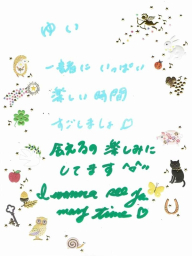 ゆい
一緒に いっぱい
楽しい 時間
すごしましょ♡
会えるの 楽しみに
してます^^
I wanna see ya
many time♡